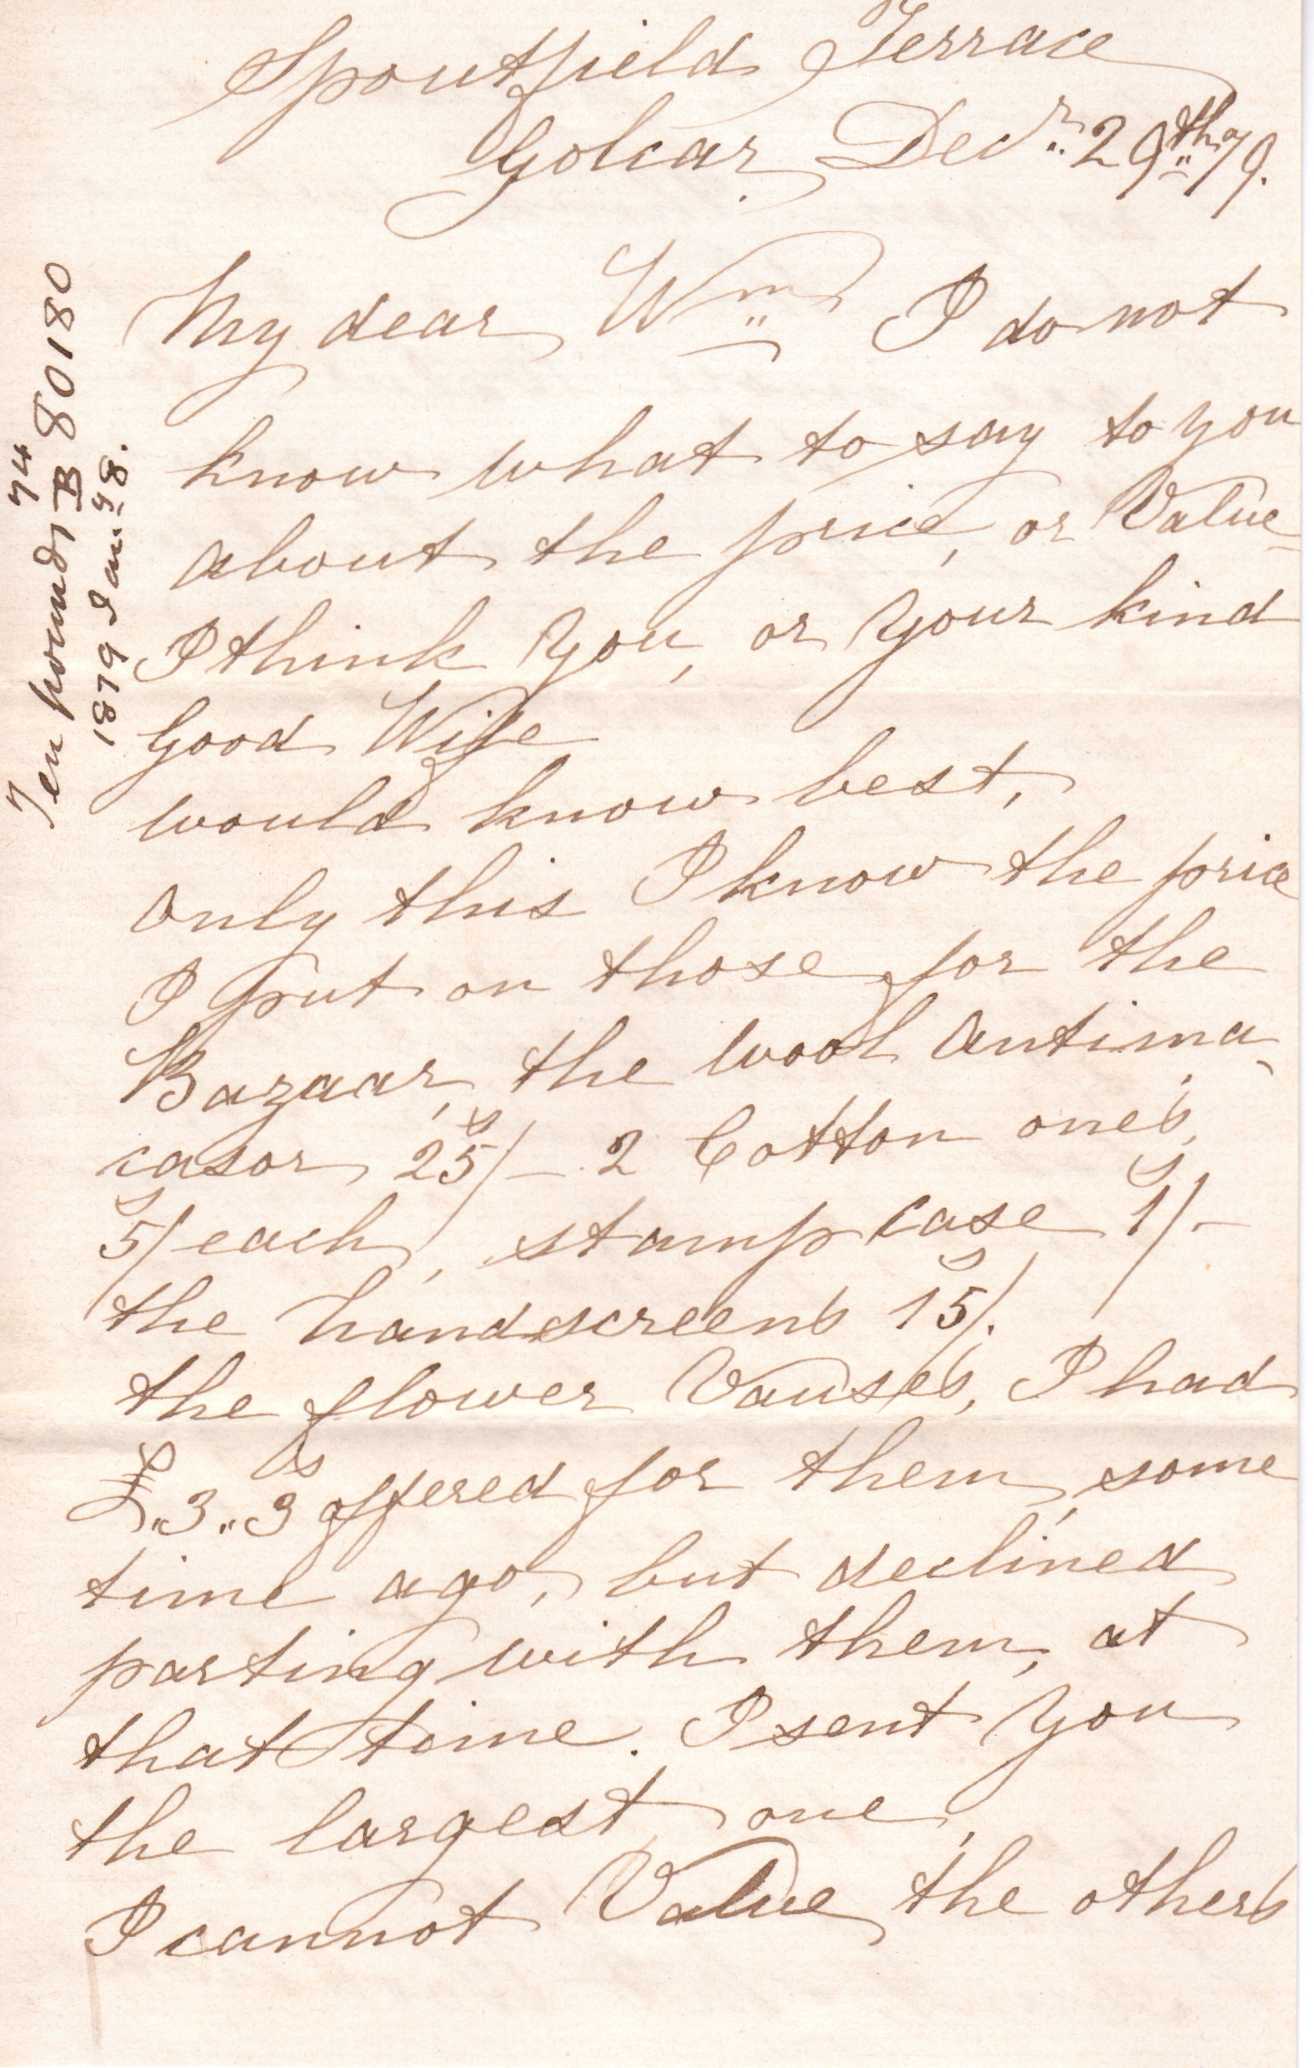 Spoutfield Terrace
Golcar Decr. 29th 79.
My dear Wm I do not
know what to say to you
about the price, or Value
I think you, or your kind
Good Wife
would know best,
only this I know the price
I put on those for the
Bazaar, the wool antima-
casor 25s/- 2 Cotton ones,
5s/ each, stamp case 1s/-
the handscreens 15s/.
the flower Vauses, I had
£.3.3s offered for them, some
time ago, but declined
parting with them, at
that time. I sent you
the largest one,
I cannot Value the others
Ten pounds 74 B 80180
1879 Jany 8.